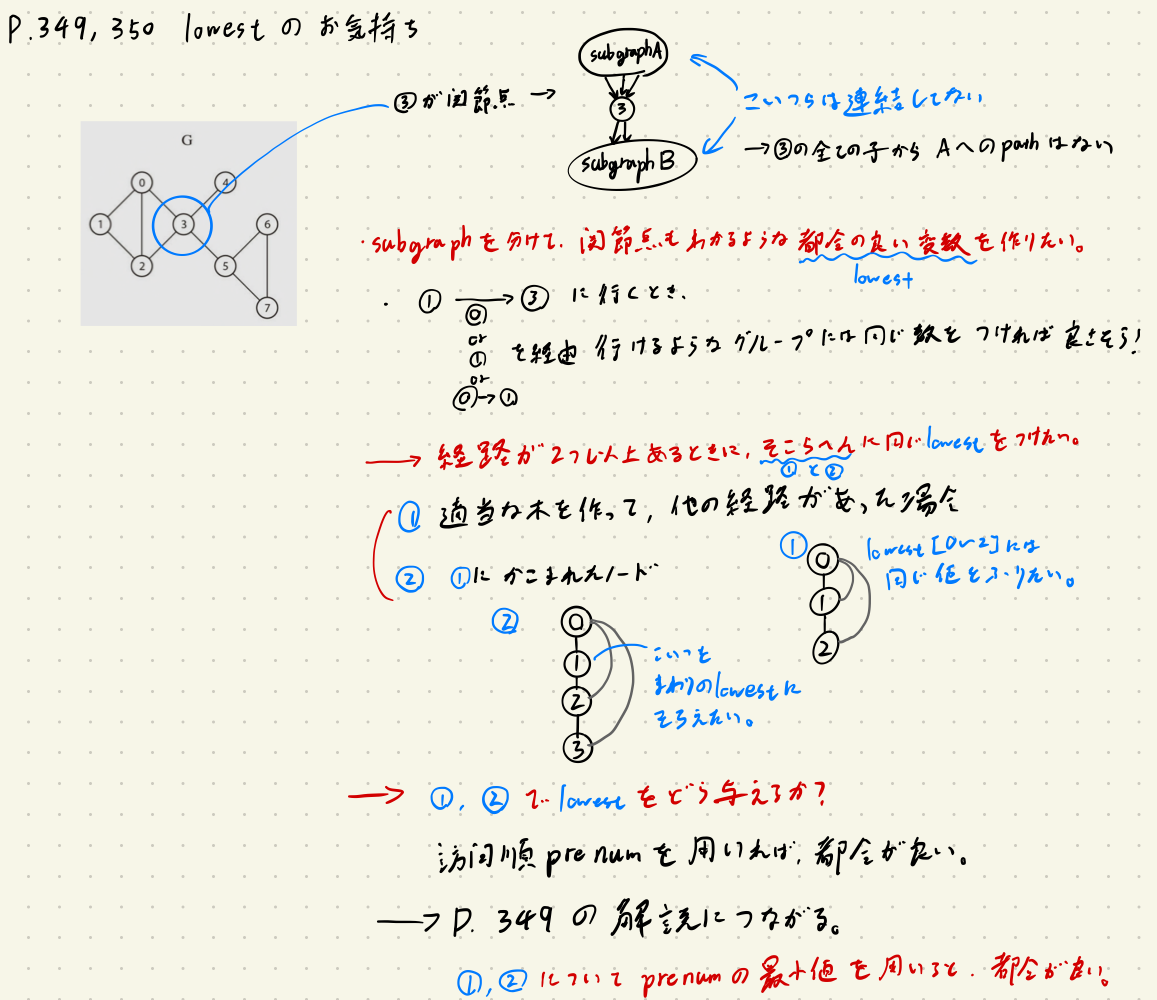 P.349, 350 lowest の お気持ち
③が関節点 →
subgraph A
3
subgraph B
こいつらは連結してない
→③の全ての子から Aへのpathはない
G
0
4
1
3
6
2
5
7
・subgraphを分けて、関節点もわかるような 都合の良い変数を作りたい。
lowest
・ ① → ③ に行くとき、
⓪
or
① を経由 行けるようなグループには同じ数を つければ 良さそう!
or
⓪→①
→ 経路が2つ以上あるときに, そこらへんに同じlowestをつけたい。
①と②
① 適当な木を作って, 他の経路があった場合
② ①に かこまれたノード
①
0
1
2
lowest[0~2]には
同じ値をふりたい。
②
0
1
2
3
こいつを
まわりのlowestに
そろえたい。
→ ①, ② で lowest をどう与えるか?
訪問順 prenumを 用いれば, 都合が良い。
→ P. 349 の 解説につながる。
①,② について prenumの 最小値 を用いると、都合が良い。